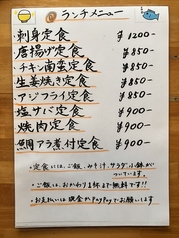 ランチメニュー
・刺身定食 ¥1200-
・唐揚げ定食 ¥850-
・チキン南蛮定食 ¥850-
・生姜焼き定食 ¥850-
・アジフライ定食 ¥850-
・塩サバ定食 ¥900-
・焼肉定食 ¥900-
・鯛アラ煮付定食 ¥900-
・定食には、ご飯、みそ汁、サラダ、小鉢が
ついてます。
・ご飯は、おかわり1杯まで無料です!!
・お支払いは現金かPayPayでお願いします